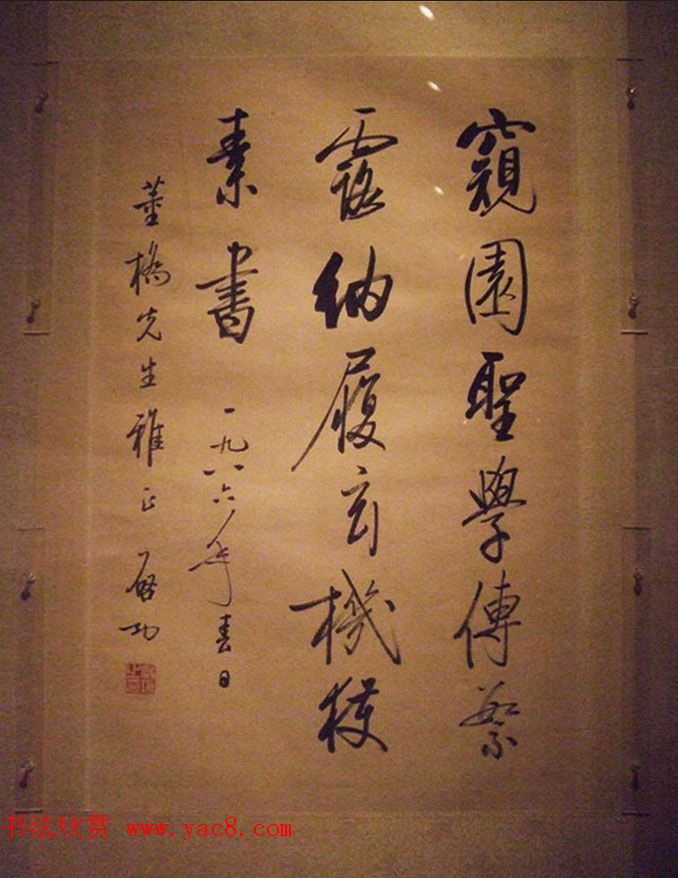 窺園聖學傳繁
露納履玄機獲
素書
一九八六年春日
董橋先生雅正 啓功
书法欣赏 www.yac8.com